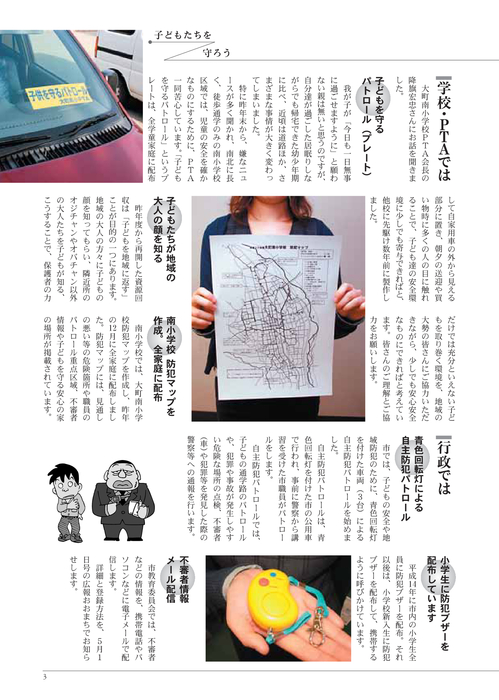 子どもたちを
守ろう
学校・PTAでは
大町南小学校PTA会長の
降旗安忠さんにお話を聞きま
した。
子どもを守る
パトロール（プレート）
我が子が「今日も一日無事
に過ごせますように」と願わ
ない親は無いと思うのですが、
自分達が過ごした居眠りしな
がらでも帰宅できた幼少年期
に比べ、近頃は道路ほか、さ
まざまな事情が大きく変わっ
てしまいました。
特に昨年末から、嫌なニュ
ースが多く聞かれ、南北に長
く、徒歩通学のみの南小学校
区域では、児童の安全を確か
なものにするために、PTA
一同苦心しています。「子ども
を守るパトロール」というプ
レートは、全学童家庭に配布
して自家用車の外から見える
部分に置き、朝夕の送迎や買
い物時に多くの人の目に触れ
ることで、子ども達の安全環
境に少しでも寄与できればと、
他校に先駆け数年前に製作し
ました。
子どもたちが地域の
大人の顔を知る
昨年度から再開した資源回
収は「子どもを地域に返す」
ことが目的の一つにあります。
地域の大人の方々に子どもの
顔を知ってもらい、隣近所の
オジチャンやオバチャン以外
の大人たちを子どもが知る、
こうすることで、保護者の力
だけでは充分といえない子ど
もを取り巻く環境を、地域の
大勢の皆さんにご協力いただ
きながら、少しでも安心安全
なものにできればと考えてい
ます。皆さんのご理解とご協
力をお願いします。
南小学校 防犯マップを
作成。全家庭に配布
南小学校では、大町南小学
校防犯マップを作成し、昨年
の12月に全家庭に配布しまし
た。防犯マップには、見通し
の悪い等の危険箇所や職員の
パトロール重点区域、不審者
情報や子どもを守る安心の家
の場所が掲載されています。
行政では
青色回転灯による
自主防犯パトロール
市では、子どもの安全や地
域防犯のために、青色回転灯
を付けた車両（3台）による
自主防犯パトロールを始めま
した。
自主防犯パトロールは、青
色回転灯を付けた市の公用車
で行われ、事前に警察から講
習を受けた市職員がパトロー
ルをします。
自主防犯パトロールでは、
子どもの通学路のパトロール
や、犯罪や事故が発生しやす
い危険な場所の点検、不審者
（車）や犯罪等を発見した際の
警察等への通報を行います。
小学生に防犯ブザーを
配布しています
平成14年に市内の小学生全
員に防犯ブザーを配布、それ
以後は、小学校新入生に防犯
ブザーを配布して、携帯する
ように呼びかけています。
不審者情報
メール配信
市教育委員会では、不審者
などの情報を、携帯電話やパ
ソコンなどに電子メールで配
信します。
詳細と登録方法を、5月1
日号の広報おおまちでお知ら
せします。
子供を守るパトロール
3